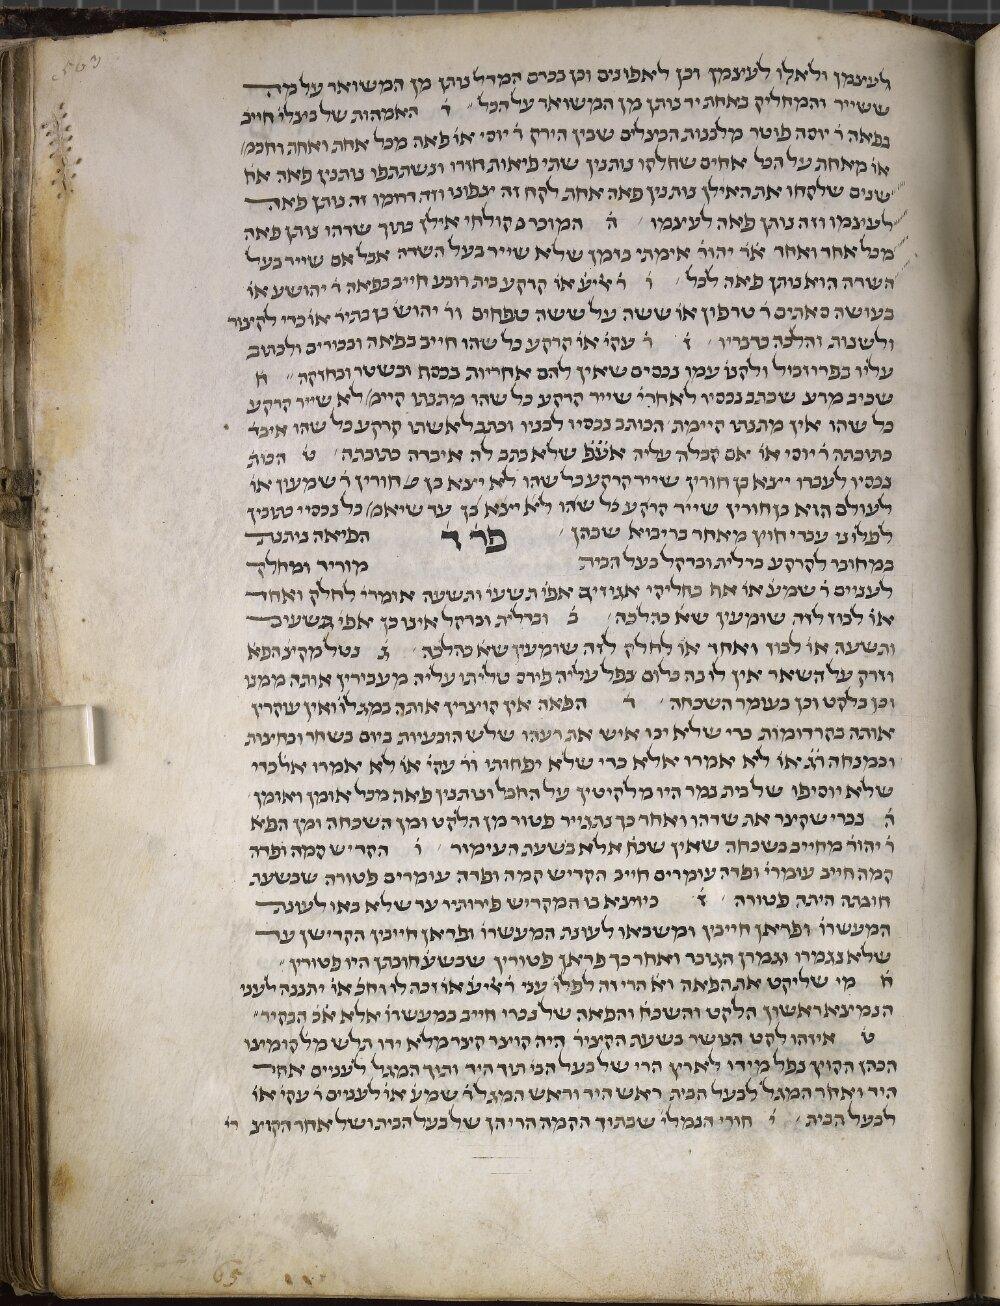 לעיצמן ולאלו לעיצמן וכן לאפונים וכן בכרם המדל נותן מן המשואר על מה
ששייר והמחליק באחת יד נותן מן המשואר על הכל ד האמהות של בצלי׳ חייב׳
בפאה ר׳ יוסה פוטר מלבנות הבצלים שבין הירק ר׳ יוסי או׳ פאה מכל אחת ואחת וחכמ׳
או׳ מאחת על הכל אחים שחלקו נותנין שתי פיאות חזרו ונשתתפו נותנין פאה אח׳
שנים שלקחו את האילן נותנין פאה אחת לקח זה צפונו וזה דרומו זה נותן פאה
לעיצמו וזה נותן פאה לעיצמו ה המוכר קולחי אילן בתוך שדהו נותן פאה
מכל אחד ואחד אר׳ יהוד׳ אימתי בזמן שלא שייר בעל השדה אבל אם שייר בעל
השדה הוא נותן פאה לכל ו ר׳ אליע׳ או׳ קרקע בית רובע חייב בפאה ר׳ יהושע או׳
בעושה סאתים ר׳ טרפון או׳ ששה על ששה טפחים ור׳ יהוש׳ בן בתיר׳ או׳ כדי לקצור
ולשנות והלכה כדבריו ז ר׳ עקי׳ או׳ קרקע כל שהו חייב בפאה ובכורים ולכתוב
עליו בפרוזביל ולקנו׳ עמו נכסים שאין להם אחריות בכסף ובשטר ובחזקה ח
שכיב מרע שכתב נכסיו לאחרי׳ שייר קרקע כל שהו מתנתו קיימ׳ לא שייר קרקע
כל שהו אין מתנתו קיימת הכותב נכסיו לבניו וכתב לאשתו קרקע כל שהו איבד׳
כתובתה ר׳ יוסי או׳ אם קבלה עליה אע״פ שלא כתב לה איבדה כתובתה ט הכות׳
נכסיו לעבדו ייצא בן חורין שייר קרקע כל שהו לא ייצא בן חורין ר׳ שמעון או׳
לעולם הוא בן חורין שייר קרקע כל שהו לא ייצא בן עד שיאמ׳ כל נכסיי נתונין
לפלוני עבדי חוץ מאחד בריבוא שבהן פר׳ ד הפיאה ניתנת
במחובר לקרקע בדלית ובדקל בעל הבית מוריד ומחלק
לעניים ר׳ שמע׳ או׳ אף בחליקי אגוזים אפי׳ תשעי׳ ותשעה אומרי׳ לחלק ואחד
או׳ לבוז לזה שומעין שא׳ כהלכה ב ובדלית ובדקל אינו כן אפי׳ תשעים
ותשעה או׳ לבוז ואחד או׳ לחלק לזה שומעין שא׳ כהלכה ג נטל מקצת הפא׳
וזרק על השאר אין לו בה כלום נפל עליה פירס טליתו עליה מעבירין אותה ממנו
וכן בלקט וכן בעומר השכחה ד הפאה אין קוצרין אותה במגלו׳ ואין עוקרין
אותה בקרדומות כדי שלא יכו איש את רעהו שלש הובעיות ביום בשחר ובחצות
ובמנחה ר״ג או׳ לא אמרו אלא כדי שלא יפחותו ור׳ עקי׳ או׳ לא אמרו אלא כדי
שלא יוסיפו של בית נמר היו מלקיטין על החבל ונותנין פאה מכל אומן ואומן
ה נכרי שקצר את שדהו ואחר כך נתגייר פטור מן הלקט ומן השכחה ומן הפא׳
ר׳ יהוד׳ מחייב בשכחה שאין שכח׳ אלא בשעת העימור ו הקדיש קמה ופדה
קמה חייב עומרי׳ ופדה עומרים חייב הקדיש קמה ופדה עומרים פטורה שבשעת
חובתה היתה פטורה ז כיוצא בו המקדיש פירותיו עד שלא באו לעונת
המעשרו׳ ופדאן חייבין ומשבאו לעונת המעשרו׳ ופדאן חייבין הקדישן עד
שלא נגמרו וגמרן הגזבר ואחר כך פדאן פטורין שבשע׳ חובתן היו פטורין
ח מי שליקט את הפאה וא׳ הרי זה לפלו׳ עני ר׳ אליע׳ או׳ זכה לו וחכ׳ או׳ יתננה לעני
הנמיצא ראשון הלקט והשכח׳ והפאה של נכרי חייב במעשרו׳ אלא א״כ הבקיר
ט איזהו לקט הנושר בשעת הקציר׳ היה קוצר קצר מלא ידו תלש מל׳ קומיצו
הכהו הקוץ נפל מידו לארץ הרי של בעל הבי׳ תוך היד ותוך המגל לעניים אחר
היד ואחר המגל לבעל הבית ראש היד וראש המגל ר׳ שמע׳ או׳ לעניים ר׳ עקי׳ או׳
לבעל הבית י חורי הנמלי׳ שבתוך הקמה הרי הן של בעל הבית ושל אחר הקוצ׳